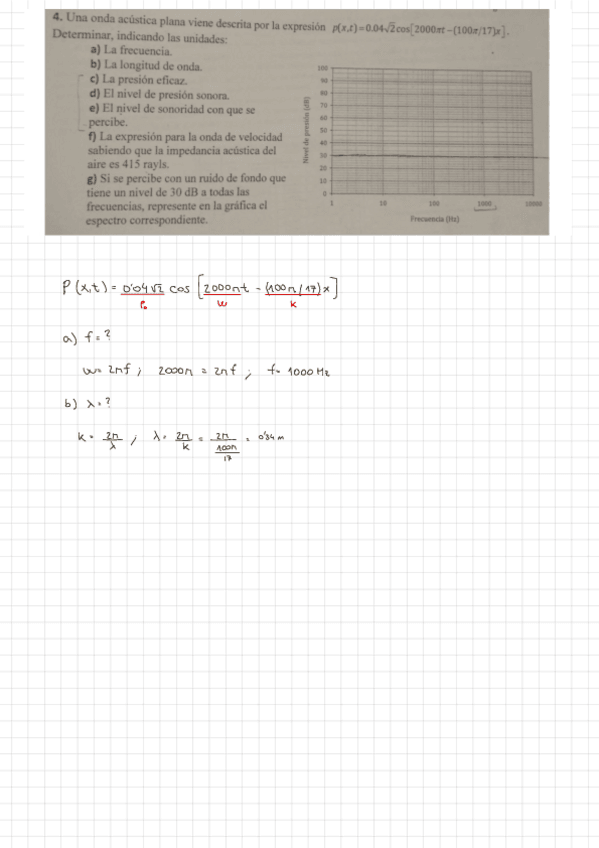 4. Una onda acústica plana viene descrita por la expresión p(x,t)=0.04√2cos[2000πt−(100π/17)x].
Determinar, indicando las unidades:
a) La frecuencia.
b) La longitud de onda.
c) La presión eficaz.
d) El nivel de presión sonora.
e) El nivel de sonoridad con que se
percibe.
f) La expresión para la onda de velocidad
sabiendo que la impedancia acústica del
aire es 415 rayls.
g) Si se percibe con un ruido de fondo que
tiene un nivel de 30 dB a todas las
frecuencias, represente en la gráfica el
espectro correspondiente.
Nivel de presión (dB)
100
90
80
70
60
50
40
30
20
10
0
1 10 100 1000 10000
Frecuencia (Hz)
P(x,t) = 0'04√2 cos [2000πt - (100π/17)x]
P₀ w k
a) f = ?
w = 2πf ; 2000π = 2πf ; f = 1000 Hz
b) λ = ?
k = 2π/λ ; λ = 2π/k = 2π/(100π/17) = 0'34 m